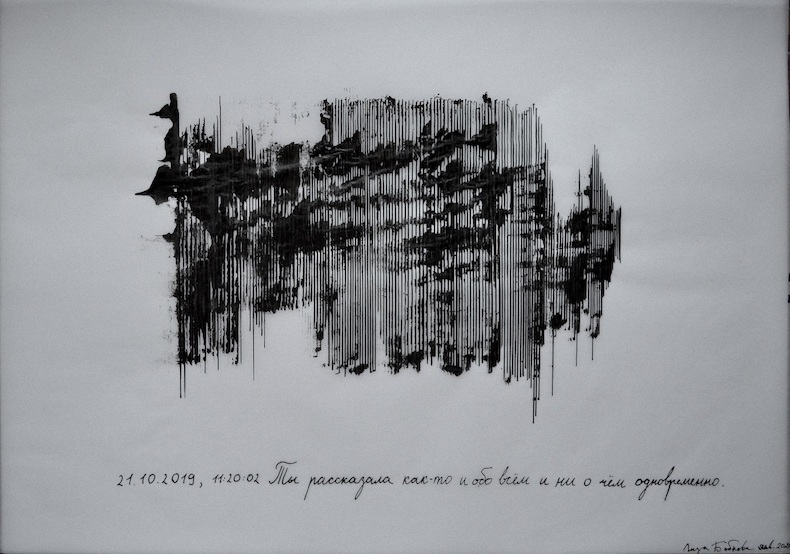 21.10.2019, 11:20:02 Ты рассказала как-то и обо всём и ни о чём одновременно.
Лиза Бобкова